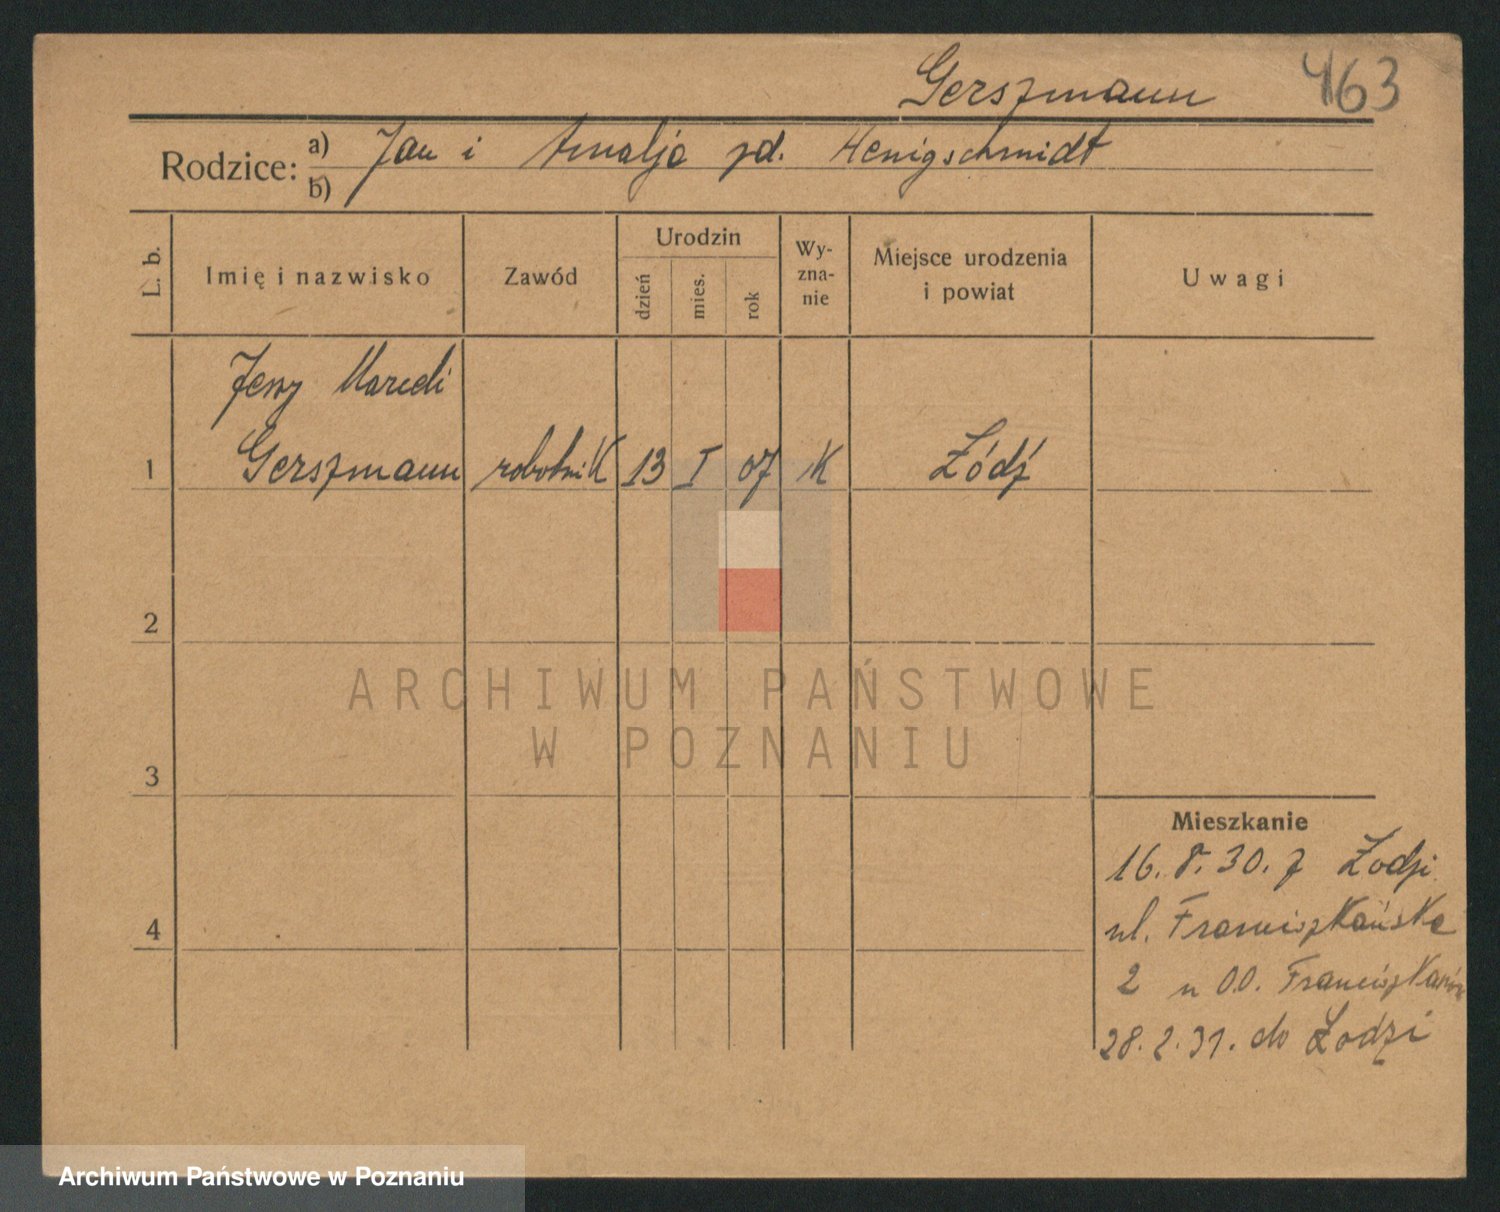 Gerszmann 463
Rodzice: a) Jan i Amalja zd. Henigschmidt
b)
L. b. Imię i nazwisko Zawód Urodzin dzień mies. rok Wy-zna-nie Miejsce urodzenia i powiat Uwagi
Jerzy
1 Gerszmann robotnik 13 I 07 K Łódź
2
3
4
Mieszkanie
16. 8. 30. z Łodzi
ul. Franciszkańska
2 u O.O. Franciszkanów
28. 2. 31. do Łodzi
ARCHIWUM PAŃSTWOWE
W POZNANIU
Archiwum Państwowe w Poznaniu